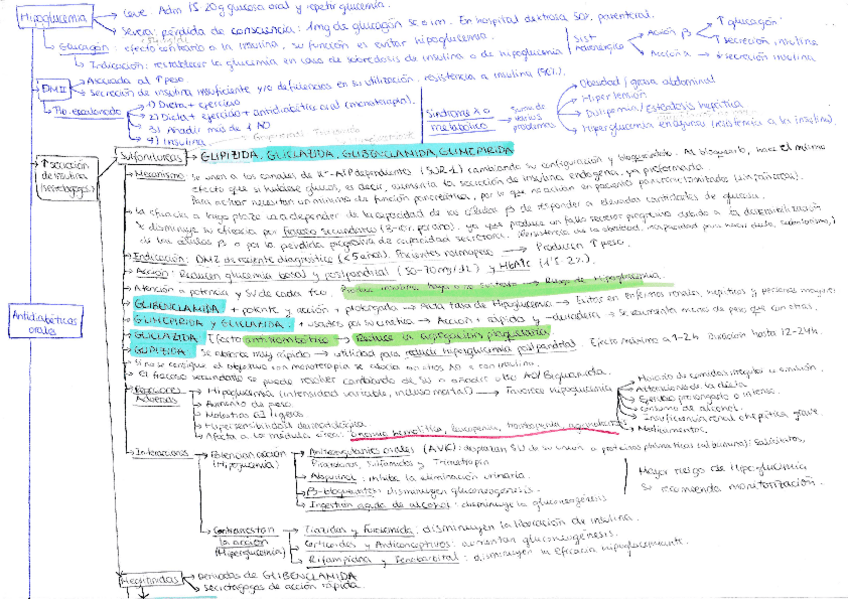 Hipoglucemia
Leve: Adm 15-20g glucosa oral y repetir glucemia.
Severa: pérdida de consciencia: 1mg de glucagón SC o IM. En hospital dextrosa 50%, parenteral.
Glucagón: efecto contrario a la insulina, su función es evitar hipoglucemia.
Indicación: restablecer la glucemia en caso de sobredosis de insulina o de hipoglucemia
Sist Adrenérgico
Acción β
↑ glucagón
↑ secreción insulina
Acción α → ↓ secreción insulina
DM II
Asociada al ↑ peso
Secreción de insulina insuficiente y/o deficiencias en su utilización. resistencia a insulina
Tto escalonado
1) Dieta + ejercicio
2) Dieta + ejercicio + antidiabético oral (monoterapia).
3) Añadir más de 1 AO
4) Insulina
Síndrome metabólico
Suma de varios problemas
Obesidad / grasa abdominal
Hipertensión
Dislipemia / Esteatosis hepática
Hiperglucemia en ayunas (resistencia a la insulina).
Antidiabéticos orales
↑ secreción de insulina (secretagogos)
Sulfonilureas → GLIPIZIDA, GLICLAZIDA, GLIBENCLAMIDA, GLIMEPIRIDA
Mecanismo: Se unen a los canales de K⁺-ATP dependientes (SUR-1) cambiando su configuración y bloqueándolo. Al bloquearlo, hace el mismo
efecto que si hubiese glucosa, es decir, aumenta la secreción de insulina endógena, ya preformada
Para actuar necesitan un mínimo de función pancreática, por lo que no actúan en pacientes pancreatectomizados
La eficacia a largo plazo va a depender de la capacidad de las células β de responder a elevadas cantidades de glucosa.
disminuye su eficacia por fracaso secundario ya que produce un fallo secretor progresivo debido a la
de las células β o por la pérdida progresiva de capacidad secretora.
Indicación: DM2 de reciente diagnóstico (<5 años). Pacientes normopeso → Producen ↑ peso.
Acción: Reducen glucemia basal y postprandial (50-70mg/dL) y HbA1c (1'5-2%).
Atención a potencia y SV de cada fco. → Riesgo de Hipoglucemia
GLIBENCLAMIDA + potente y acción + prolongada → Alta tasa de Hipoglucemia → Evitar en enfermos renales, hepáticos y personas mayores
GLIMEPIRIDA y GLICLAZIDA. + usados por su cinética → Acción + rápida y -duradera → Se aumenta menos de peso que con otras.
GLICLAZIDA Efecto antitrombótico → Reduce la agregación plaquetaria
GLIPIZIDA Se absorbe muy rápido → utilidad para reducir hiperglucemia postprandial. Efecto máximo a 1-2h Duración hasta 12-24h.
Si no se consigue el objetivo con monoterapia se asocia con otros AO o con insulina.
El fracaso secundario se puede resolver cambiando de SU o añadir otro AO/Biguanida.
Reacciones Adversas
Hipoglucemia (intensidad variable, incluso mortal) → Favorece hipoglucemia
Aumento de peso
Molestias GI ligeras
Hipersensibilidad dermatológica.
Afecta a la médula ósea: anemia hemolítica, leucopenia, trombopenia, agranulocitosis
Horario de comidas irregular u omisión.
Alteraciones de la dieta
Ejercicio prolongado o intenso.
Consumo de alcohol.
Insuficiencia renal o hepática grave.
Medicamentos.
Interacciones
Potencian acción (Hipoglucemia)
Anticoagulantes orales (AVK): desplazan SU de su unión a proteínas plasmáticas (albúmina): Salicilatos,
Sulfamidas y Trimetoprim
Alopurinol: inhibe la eliminación urinaria.
β-bloqueantes: disminuyen gluconeogénesis.
Ingestión aguda de alcohol: disminuye la gluconeogénesis
Mayor riesgo de Hipoglucemia
Se recomienda monitorización.
Contrarrestan la acción (Hiperglucemia)
Tiazidas y Furosemida: disminuyen la liberación de insulina.
Corticoides y Anticonceptivos: aumentan gluconeogénesis.
Rifampicina y Fenobarbital: disminuyen la eficacia hipoglucemiante.
Meglitinidas
Derivados de GLIBENCLAMIDA
Secretagogos de acción rápida.